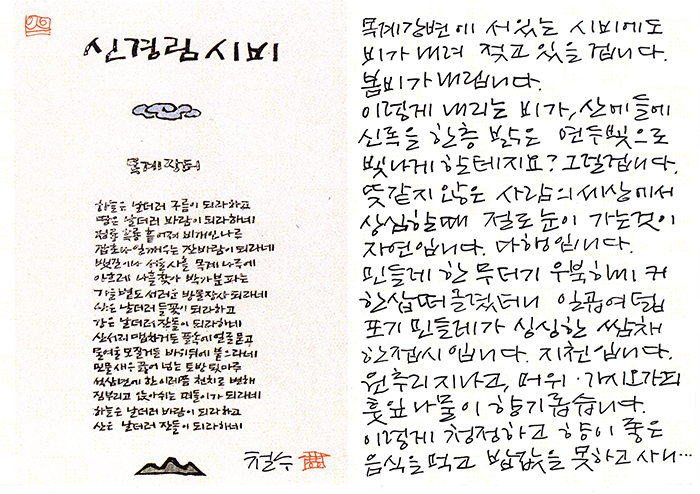 신경림 시비
목계장터
하늘은 날더러 구름이 되라하고
땅은 날더러 바람이 되라하네
청룡 흑룡 흩어져 비개인 나루
잡초나 일깨우는 잔바람이 되라네
뱃길이라 서울사흘 목계 나루에
아흐레 나흘찾아 박가분 파는
가을볕도 서러운 방물장사 되라네
산은 날더러 들꽃이 되라하고
강은 날더러 잔돌이 되라하네
산서리 맵차거든 풀속에 얼굴묻고
물여울 모질거든 바위뒤에 붙으라네
민물새우 끓어 넘는 토방 툇마루
석삼년에 한 이레쯤 천치로 변해
짐부리고 앉아쉬는 떠돌이가 되라네
하늘은 날더러 바람이 되라하고
산은 날더러 잔돌이 되라하네
철수
목계강변에 서있는 시비에도
비가 내려 젖고 있을 겁니다.
봄비가 내립니다.
이렇게 내리는 비가, 산에 들에
신록을 한층 밝은 연두빛으로
빛나게 할테지요? 그럴겁니다.
뜻같지 않은 사람의 세상에서
상심할때 절로 눈이 가는것이
자연입니다. 다행입니다.
민들레 한 무더기 우북하니 커
한삽 떠 올렸더니 일곱여덟
포기 민들레가 싱싱한 쌈채
한접시 입니다. 지천입니다.
원추리 지나고, 머위·가시오가피
홑잎나물이 향기롭습니다.
이렇게 청정하고 향이 좋은
음식을 먹고 밥값을 못하고 사니…